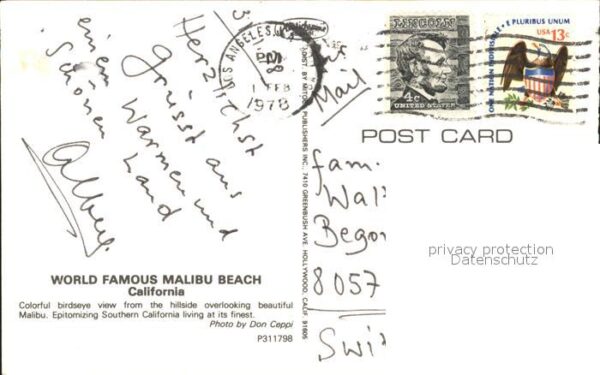 Herzlichst
grüsst aus
einem Warmen und
Schönen Land
Albert
WORLD FAMOUS MALIBU BEACH
California
Colorful birdseye view from the hillside overlooking beautiful
Malibu. Epitomizing Southern California living at its finest.
Photo by Don Ceppi
P311798
DIST. BY MITOCK PUBLISHERS INC., 7410 GREENBUSH AVE. HOLLYWOOD, CALIF. 91605
LOS ANGELES, CA
FEB
1978
Air
Mail
LINCOLN
4c
UNITED STATES
E PLURIBUS UNUM
USA 13c
ONE NATION INDIVISIBLE
POST CARD
fam.
Wal
Begon
8057
Swi
privacy protection
Datenschutz